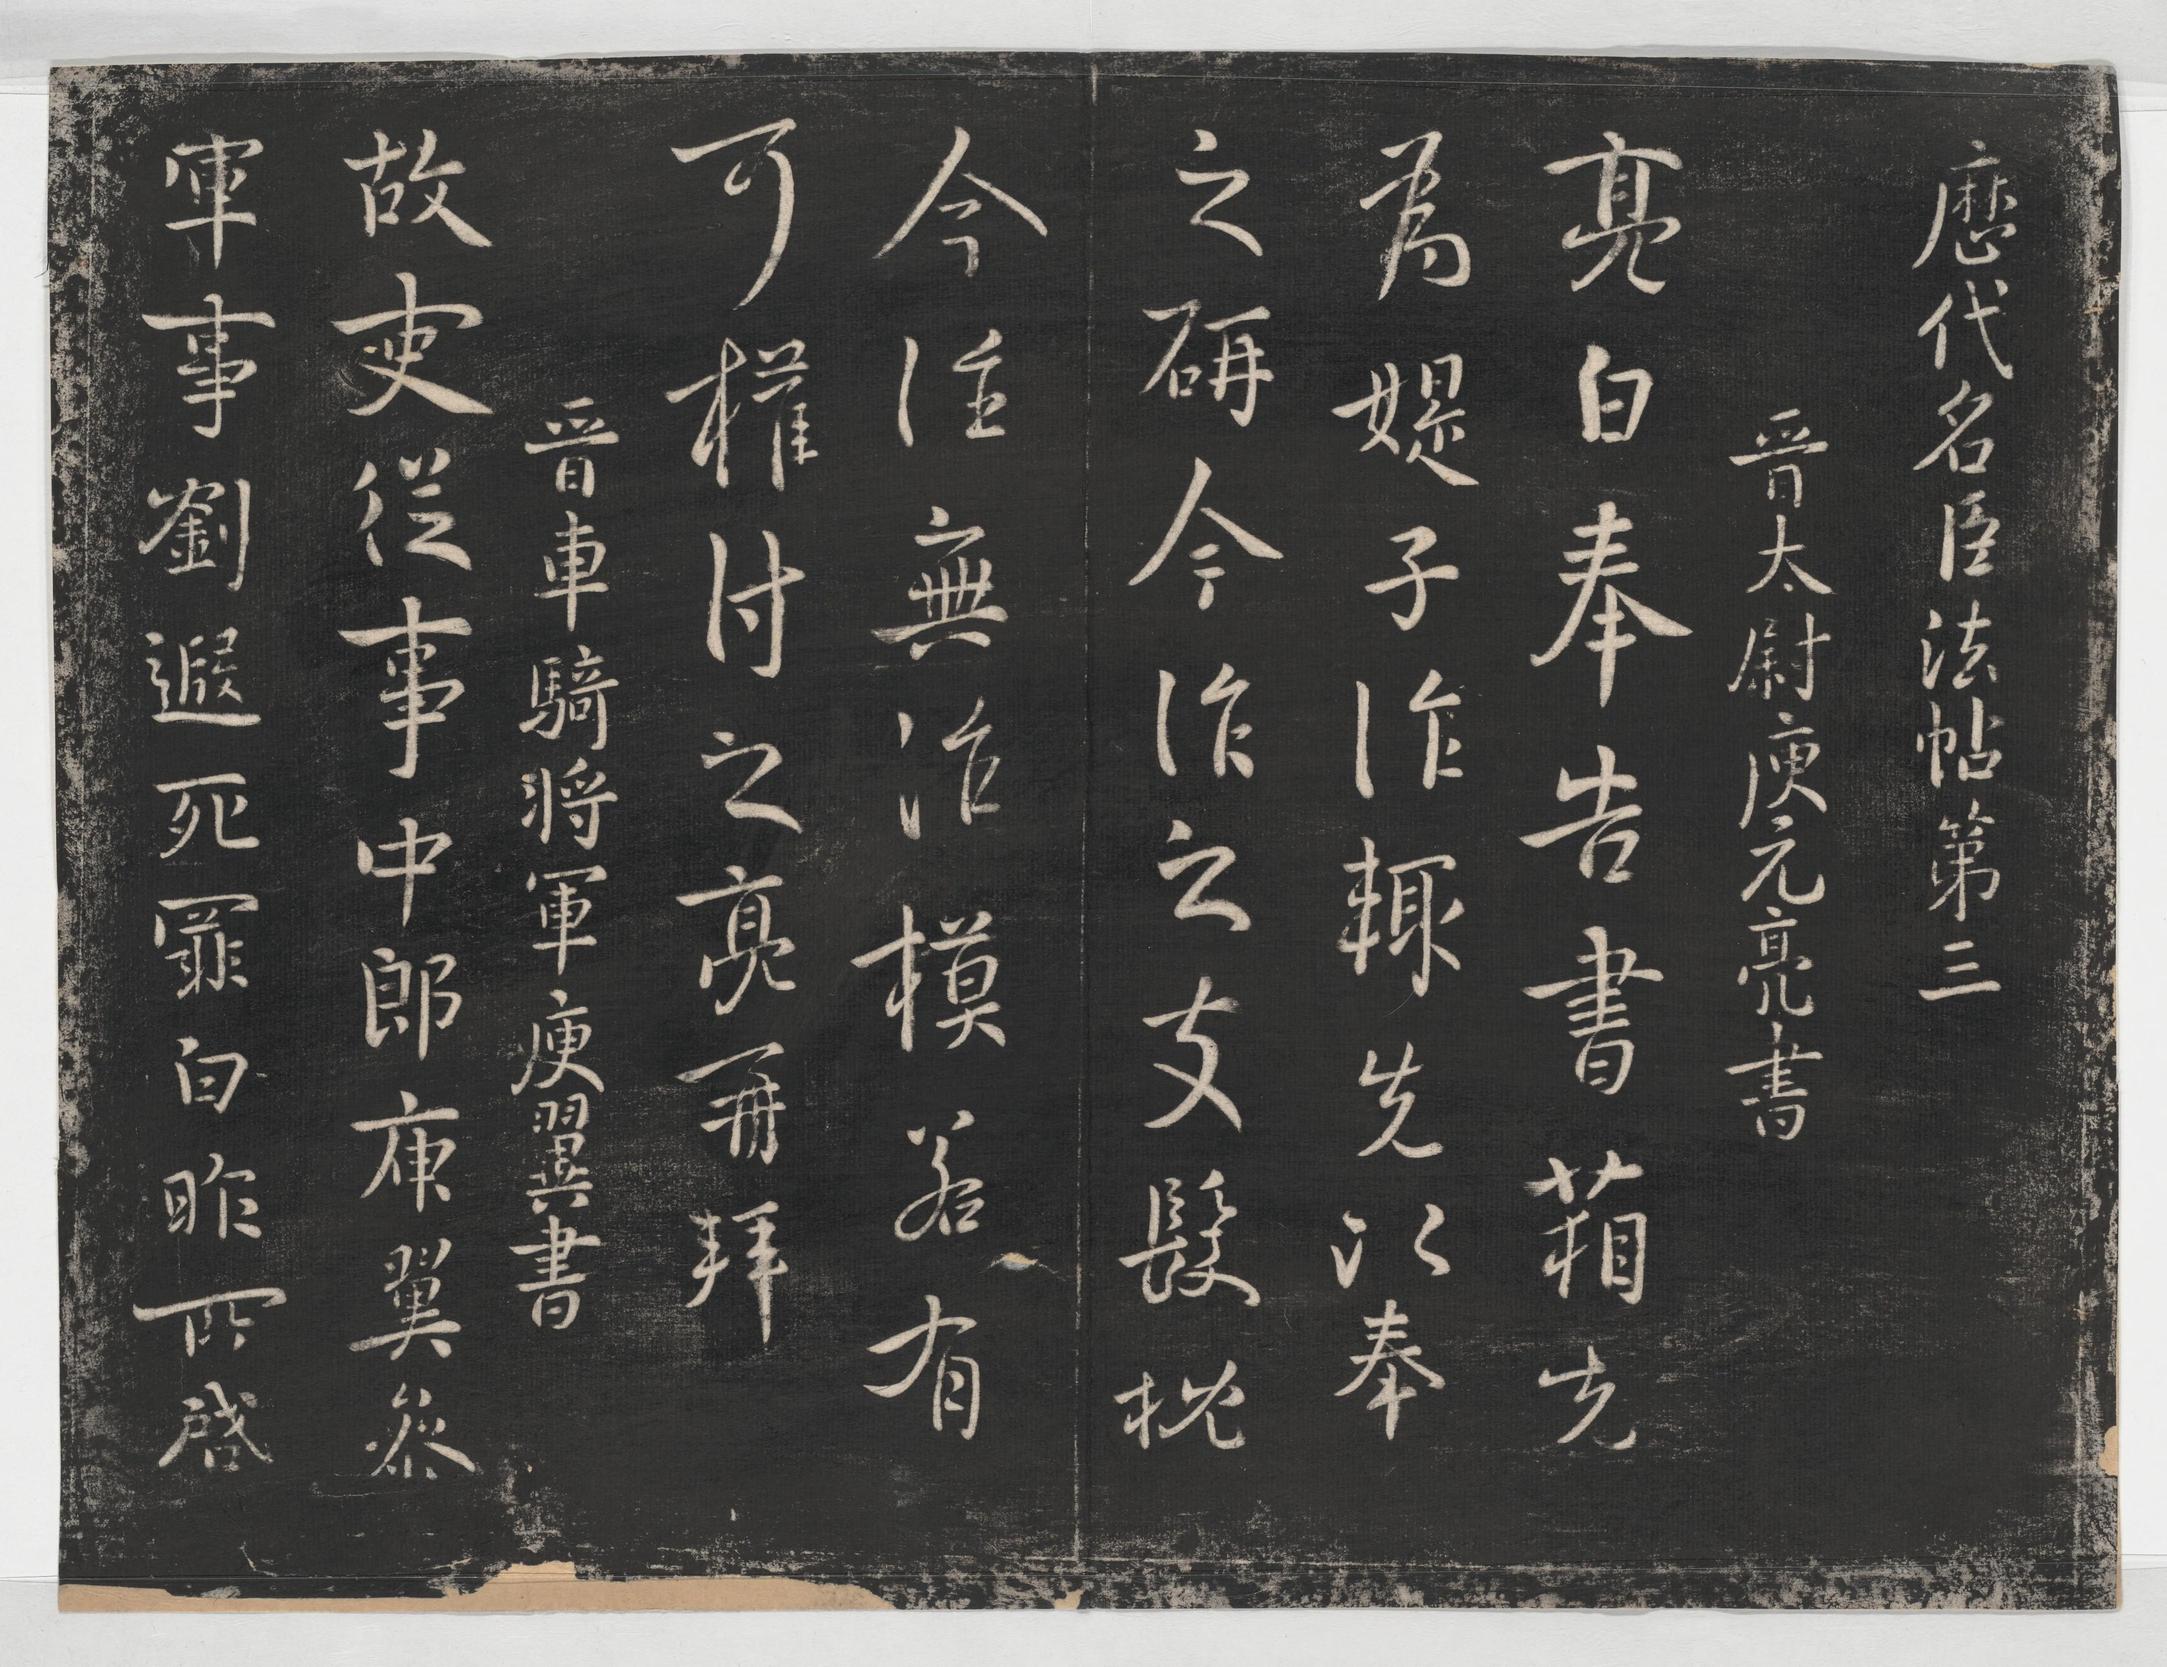 歷代名臣法帖第三
晉太尉庾元亮書
亮白奉告書箱先
為媞子作輙先以奉
之研今作之支髮枕
今往無治模若有
可權付之亮再拜
晉車騎將軍庾翼書
故吏從事中郎庾翼參
軍事劉遐死罪白昨所啓